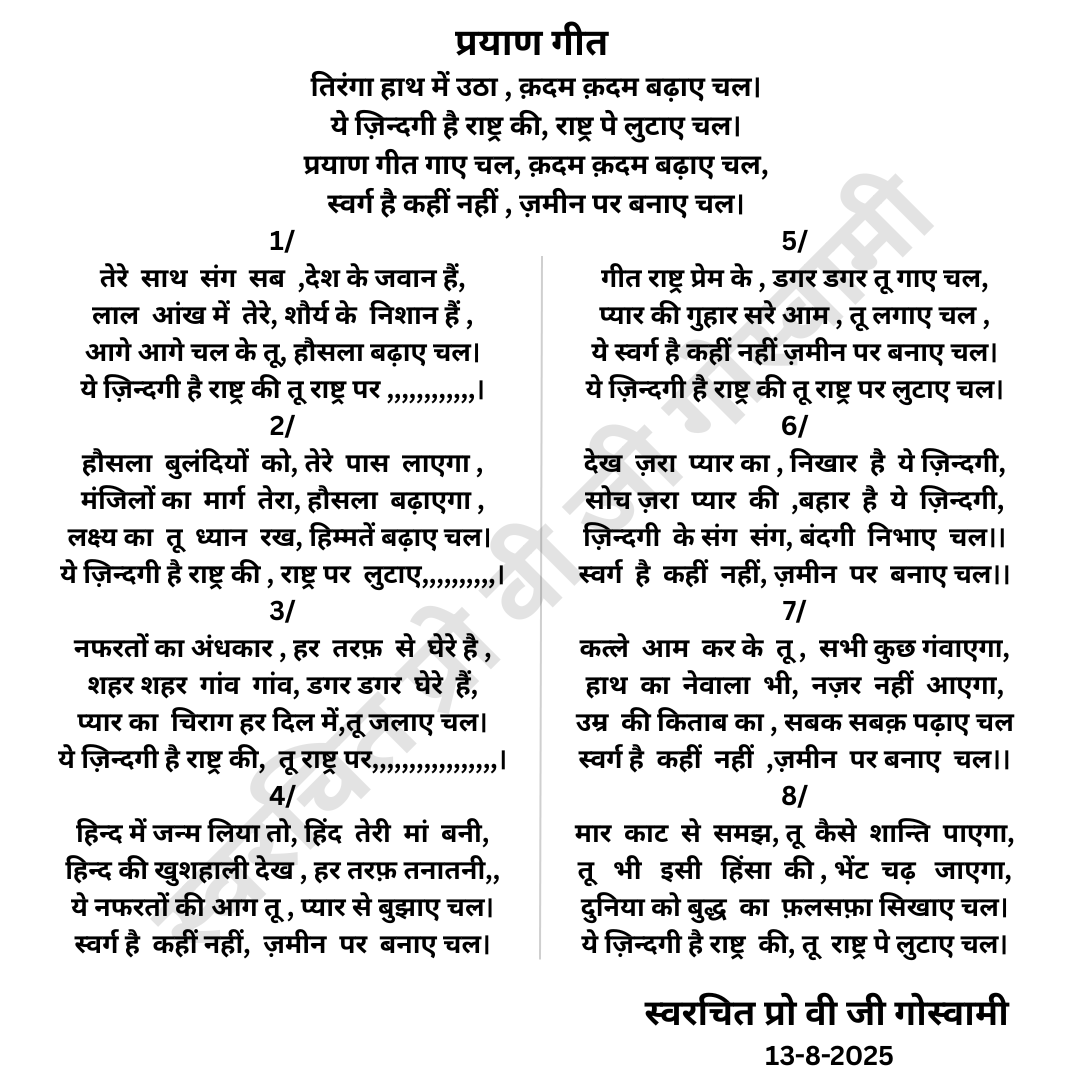 प्रयाण गीत
तिरंगा हाथ में उठा , क़दम क़दम बढ़ाए चल।
ये ज़िन्दगी है राष्ट्र की, राष्ट्र पे लुटाए चल।
प्रयाण गीत गाए चल, क़दम क़दम बढ़ाए चल,
स्वर्ग है कहीं नहीं , ज़मीन पर बनाए चल।
1/
तेरे साथ संग सब ,देश के जवान हैं,
लाल आंख में तेरे, शौर्य के निशान हैं ,
आगे आगे चल के तू, हौसला बढ़ाए चल।
ये ज़िन्दगी है राष्ट्र की तू राष्ट्र पर ,,,,,,,,,,,,।
2/
हौसला बुलंदियों को, तेरे पास लाएगा ,
मंजिलों का मार्ग तेरा, हौसला बढ़ाएगा ,
लक्ष्य का तू ध्यान रख, हिम्मतें बढ़ाए चल।
ये ज़िन्दगी है राष्ट्र की , राष्ट्र पर लुटाए,,,,,,,,,,।
3/
नफरतों का अंधकार , हर तरफ़ से घेरे है ,
शहर शहर गांव गांव, डगर डगर घेरे हैं,
प्यार का चिराग हर दिल में,तू जलाए चल।
ये ज़िन्दगी है राष्ट्र की, तू राष्ट्र पर,,,,,,,,,,,,,,,,,।
4/
हिन्द में जन्म लिया तो, हिंद तेरी मां बनी,
हिन्द की खुशहाली देख , हर तरफ़ तनातनी,,
ये नफरतों की आग तू , प्यार से बुझाए चल।
स्वर्ग है कहीं नहीं, ज़मीन पर बनाए चल।
5/
गीत राष्ट्र प्रेम के , डगर डगर तू गाए चल,
प्यार की गुहार सरे आम , तू लगाए चल ,
ये स्वर्ग है कहीं नहीं ज़मीन पर बनाए चल।
ये ज़िन्दगी है राष्ट्र की तू राष्ट्र पर लुटाए चल।
6/
देख ज़रा प्यार का , निखार है ये ज़िन्दगी,
सोच ज़रा प्यार की ,बहार है ये ज़िन्दगी,
ज़िन्दगी के संग संग, बंदगी निभाए चल।।
स्वर्ग है कहीं नहीं, ज़मीन पर बनाए चल।।
7/
कत्ले आम कर के तू , सभी कुछ गंवाएगा,
हाथ का नेवाला भी, नज़र नहीं आएगा,
उम्र की किताब का , सबक सबक़ पढ़ाए चल
स्वर्ग है कहीं नहीं ,ज़मीन पर बनाए चल।।
8/
मार काट से समझ, तू कैसे शान्ति पाएगा,
तू भी इसी हिंसा की , भेंट चढ़ जाएगा,
दुनिया को बुद्ध का फ़लसफ़ा सिखाए चल।
ये ज़िन्दगी है राष्ट्र की, तू राष्ट्र पे लुटाए चल।
स्वरचित प्रो वी जी गोस्वामी
13-8-2025
स्वरचित प्रो वी जी गोस्वामी